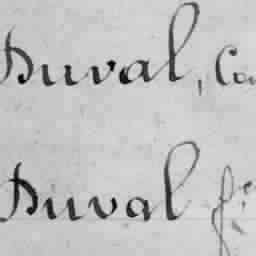 Duval, Ca
Duval